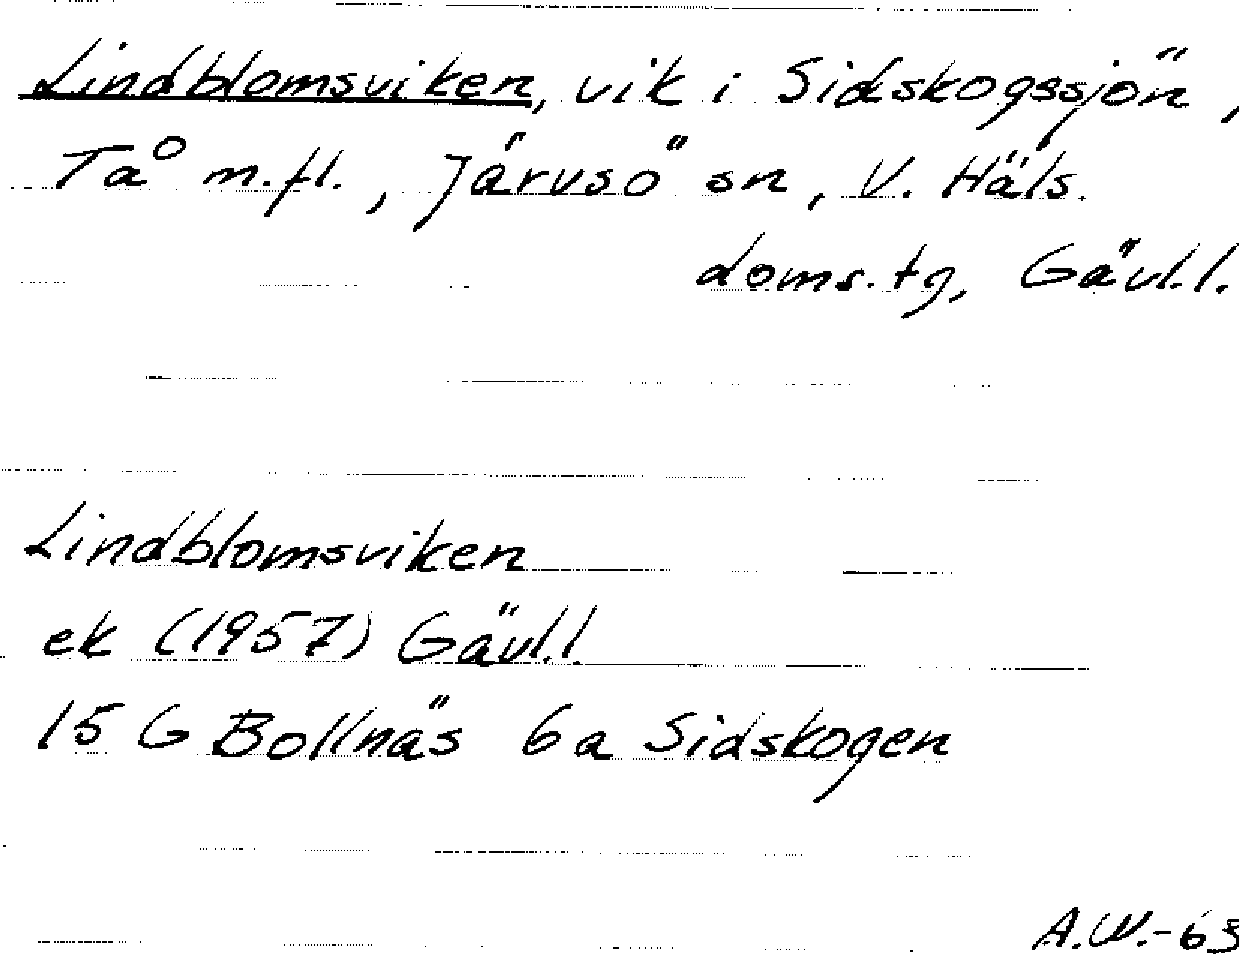 Lindblomsviken, vik i Sidskogssjön,
Tå m.fl., Järvsö sn, V. Häls.
doms.tg, Gävl.l.
Lindblomsviken
ek (1957) Gävl.l.
15 G Bollnäs 6a Sidskogen
A.W.-63